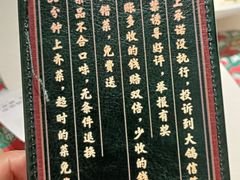 上承诺没执行,投诉到大鸽信
诱导好评,举报有奖
账多收的钱赔双倍,少收的钱
错菜,免费送
菜品不合口味,无条件退换
分钟上齐菜,超时的菜免